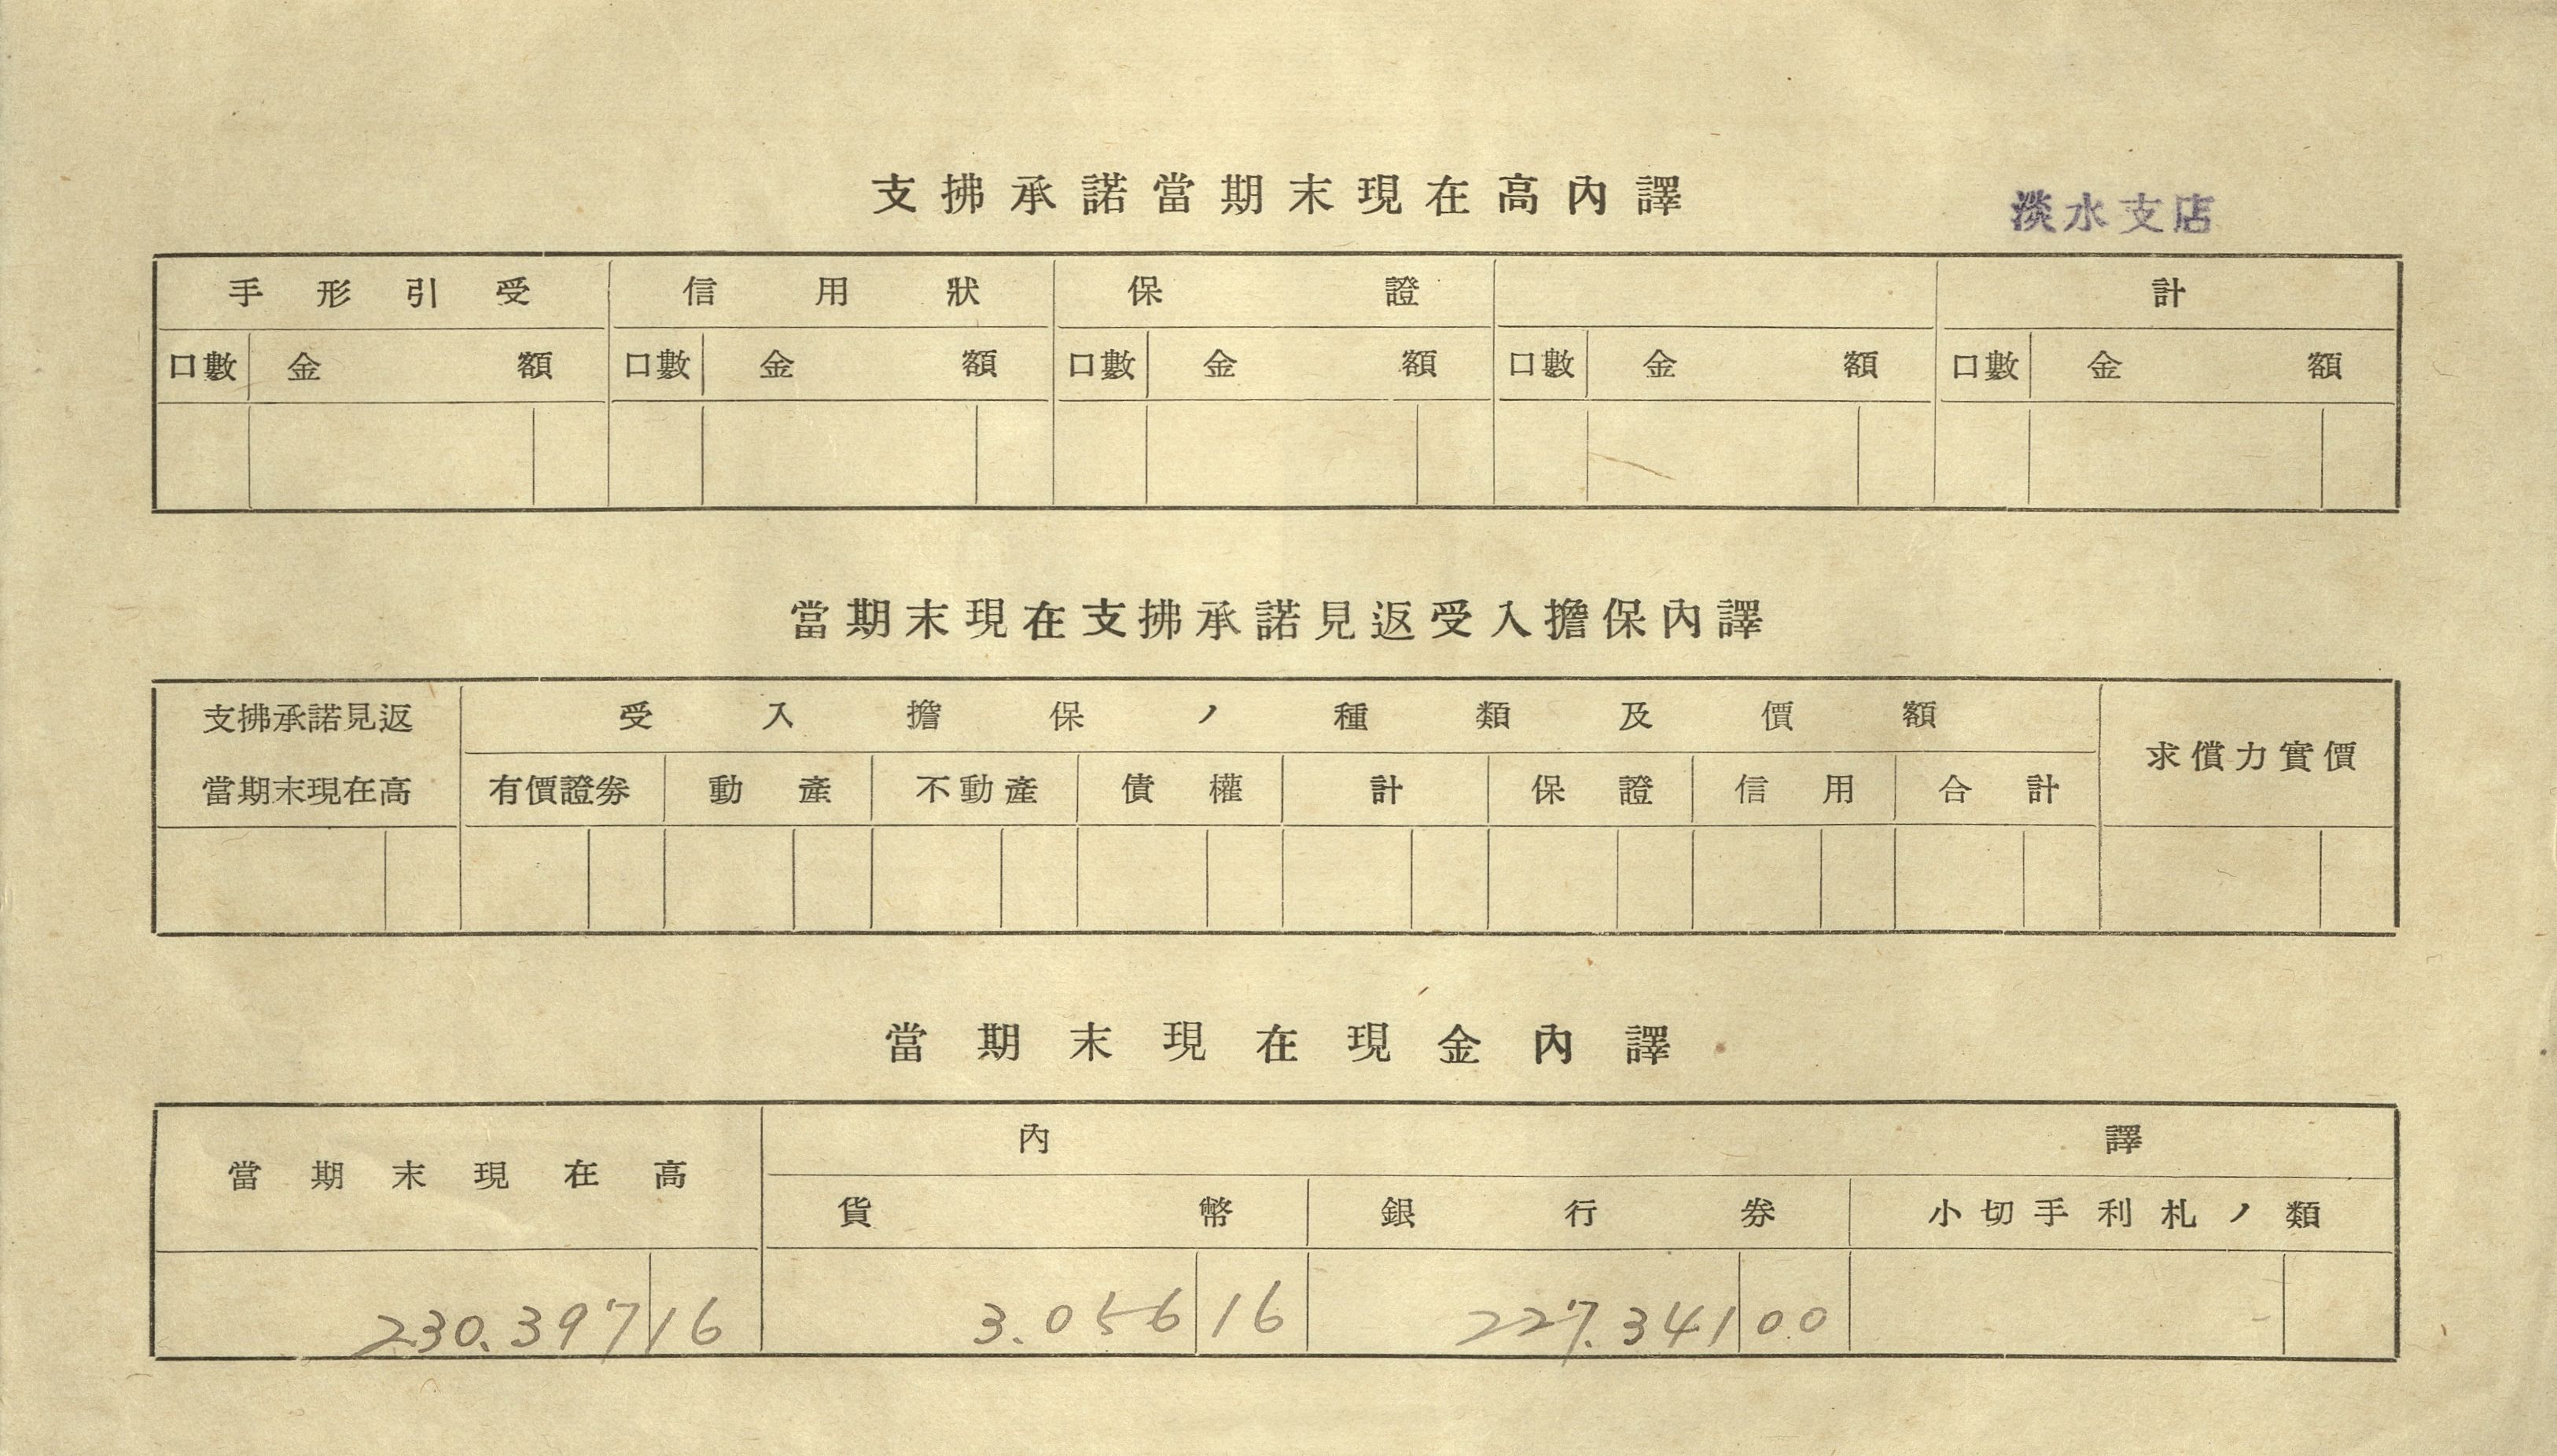 支拂承諾當期末現在高內譯
淡水支店
手形引受 信用狀 保證 計
口數 金額 口數 金額 口數 金額 口數 金額 口數 金額
當期末現在支拂承諾見返受入擔保內譯
支拂承諾見返 受入擔保ノ種類及價額 求償力實價
當期末現在高 有價證券 動產 不動產 債權 計 保證 信用 合計
當期末現在現金內譯
當期末現在高 內譯
貨幣 銀行券 小切手利札ノ類
230.397 16 3.056 16 227.341 00